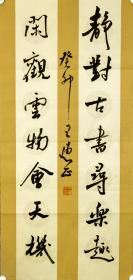 静對古書尋樂趣
閑觀雲物會天機
癸卯